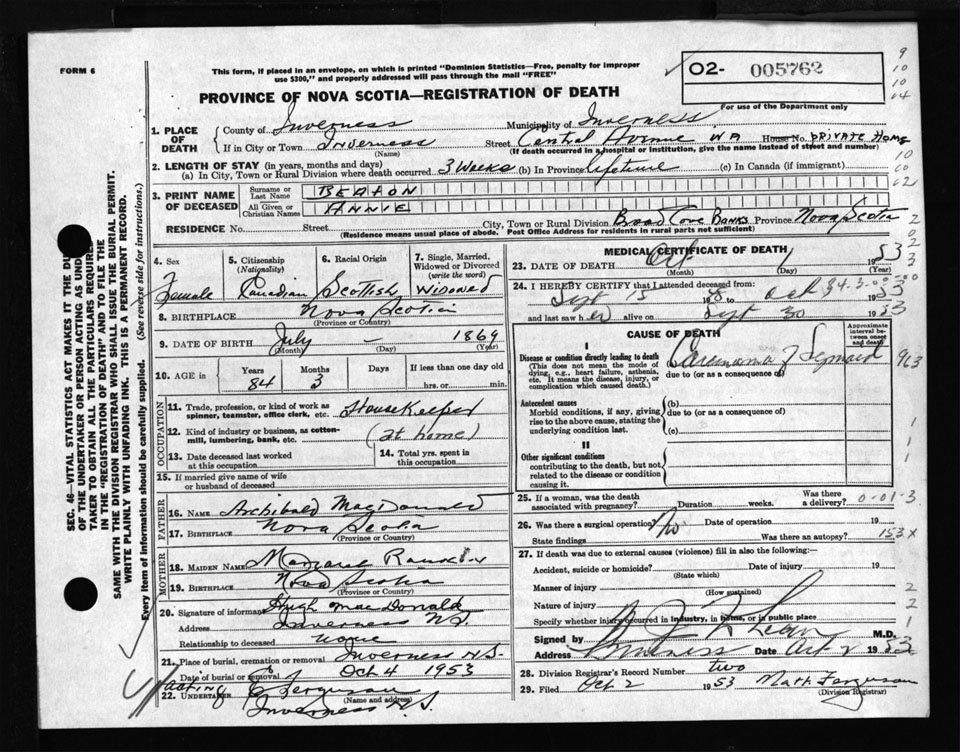 FORM 6
This form, if placed in an envelope, on which is printed "Dominion Statistics—Free, penalty for improper
use $300," and properly addressed will pass through the mail "FREE"
O2- 005762
PROVINCE OF NOVA SCOTIA—REGISTRATION OF DEATH
For use of the Department only
9
10
10
04
1. PLACE OF DEATH
County of Inverness Municipality of Inverness
If in City or Town Inverness Street Central Avenue WA House No. PRIVATE HOME
(Name) (If death occurred in a hospital or institution, give the name instead of street and number)
2. LENGTH OF STAY (in years, months and days)
(a) In City, Town or Rural Division where death occurred 3 Weeks (b) In Province lifetime (c) In Canada (if immigrant)
3. PRINT NAME OF DECEASED
Surname or Last Name BEATON
All Given or Christian Names ANNIE
RESIDENCE No. Street City, Town or Rural Division Broad Cove Banks Province Nova Scotia
(Residence means usual place of abode. Post Office Address for residents in rural parts not sufficient)
SEC. 46—VITAL STATISTICS ACT MAKES IT THE DU
OF THE UNDERTAKER OR PERSON ACTING AS UND
TAKER TO OBTAIN ALL THE PARTICULARS REQUIRE
IN THE "REGISTRATION OF DEATH" AND TO FILE THE
SAME WITH THE DIVISION REGISTRAR WHO SHALL ISSUE THE BURIAL PERMIT.
WRITE PLAINLY WITH UNFADING INK. THIS IS A PERMANENT RECORD.
Every item of information should be carefully supplied. (See reverse side for instructions.)
4. Sex
Female
5. Citizenship (Nationality)
Canadian
6. Racial Origin
Scottish
7. Single, Married, Widowed or Divorced (write the word)
Widowed
8. BIRTHPLACE Nova Scotia
(Province or Country)
9. DATE OF BIRTH July - 1869
(Month) (Day) (Year)
10. AGE Years Months Days If less than one day old
84 3 hrs. or min.
OCCUPATION
11. Trade, profession, or kind of work as spinner, teamster, office clerk, etc. Housekeeper
12. Kind of industry or business, as cotton-mill, lumbering, bank, etc. (at home)
13. Date deceased last worked at this occupation
14. Total yrs. spent in this occupation
15. If married give name of wife or husband of deceased
FATHER
16. NAME Archibald MacDonald
17. BIRTHPLACE Nova Scotia
(Province or Country)
MOTHER
18. MAIDEN NAME Margaret Rankin
19. BIRTHPLACE Nova Scotia
(Province or Country)
20. Signature of informant Hugh MacDonald
Address Inverness N.S.
Relationship to deceased None
21. Place of burial, cremation or removal Inverness N.S.
Date of burial or removal Oct 4 1953
acting
22. UNDERTAKER Ferguson
(Name and address)
Inverness N.S.
MEDICAL CERTIFICATE OF DEATH
23. DATE OF DEATH Oct 1 1953
(Month) (Day) (Year)
24. I HEREBY CERTIFY that I attended deceased from:
Sept 15 to Oct 1953
and last saw her alive on Sept 30 1953
CAUSE OF DEATH
Approximate interval between onset and death
I
Disease or condition directly leading to death
(This does not mean the mode of dying, e.g., heart failure, asthenia, etc. It means the disease, injury, or complication which caused death.)
(a) Carcinoma of Sigmoid
due to (or as a consequence of)
Antecedent causes
Morbid conditions, if any, giving rise to the above cause, stating the underlying condition last.
(b)
due to (or as a consequence of)
(c)
II
Other significant conditions
contributing to the death, but not related to the disease or condition causing it.
25. If a woman, was the death associated with pregnancy? Duration weeks. Was there a delivery? 0-01-3
26. Was there a surgical operation? No Date of operation 19
State findings Was there an autopsy? 153X
27. If death was due to external causes (violence) fill in also the following:—
Accident, suicide or homicide? Date of injury 19
(State which)
Manner of injury
(How sustained)
Nature of injury
Specify whether injury occurred in industry, in home, or in public place
Signed by M.D.
Address Inverness Date Oct 2 1953
28. Division Registrar's Record Number two
29. Filed Oct 2 1953 Matt Ferguson
(Division Registrar)